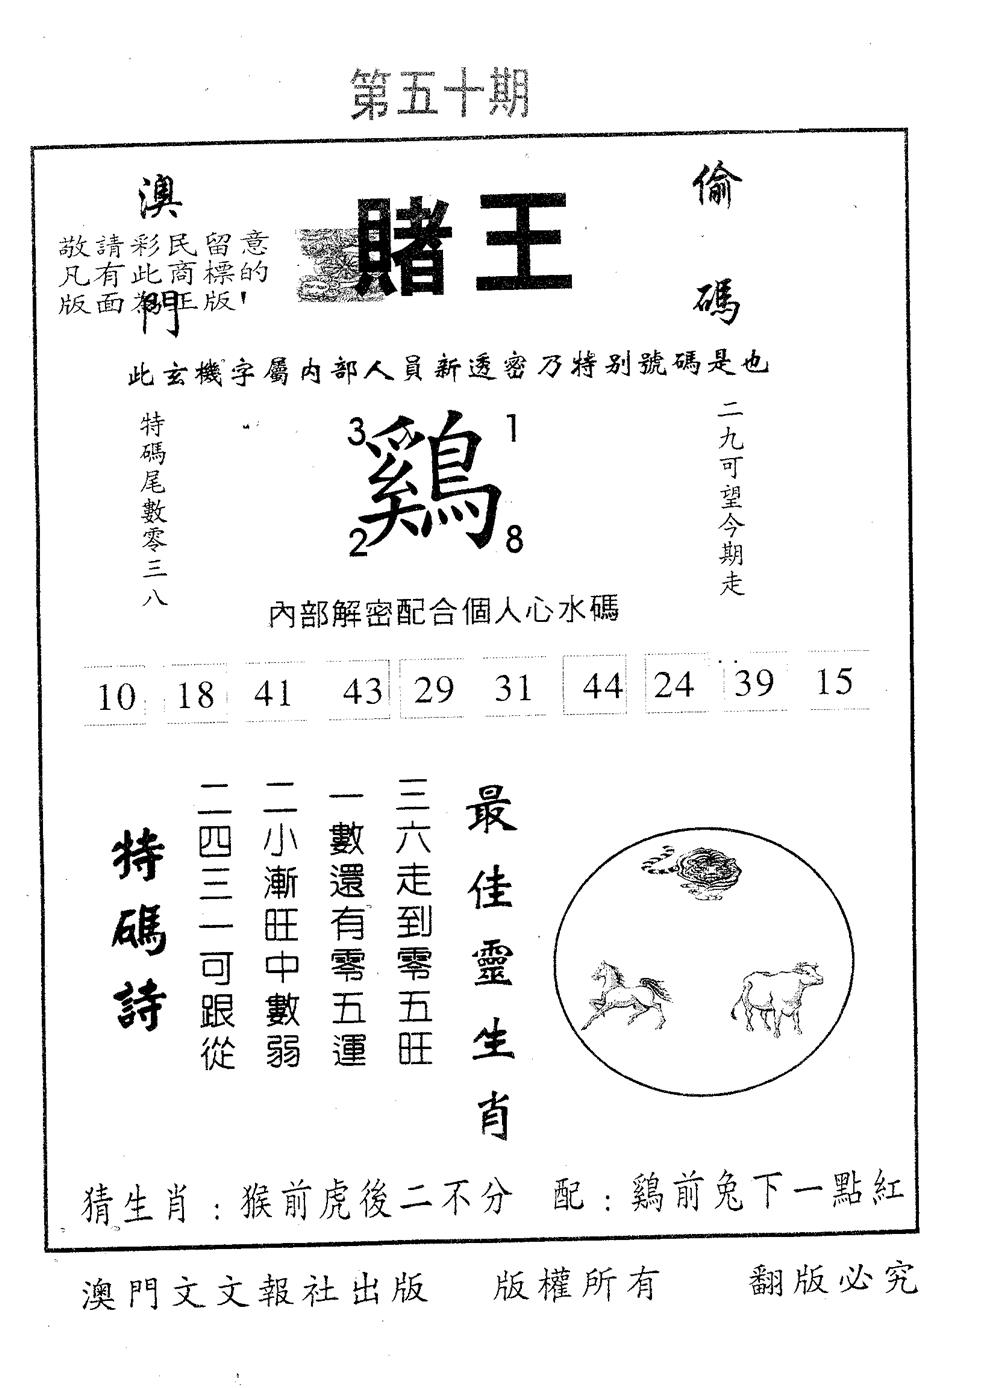 第五十期
澳門
賭王
偷碼
敬請彩民留意
凡有此商標的
版面為正版!
此玄機字屬内部人員新透密乃特别號碼是也
特碼尾數零三八
3 1
鷄
2 8
二九可望今期走
內部解密配合個人心水碼
10 18 41 43 29 31 44 24 39 15
最佳靈生肖
三六走到零五旺
一數還有零五運
二小漸旺中數弱
二四三一可跟從
特碼詩
猜生肖:猴前虎後二不分 配:鷄前兔下一點紅
澳門文文報社出版 版權所有 翻版必究